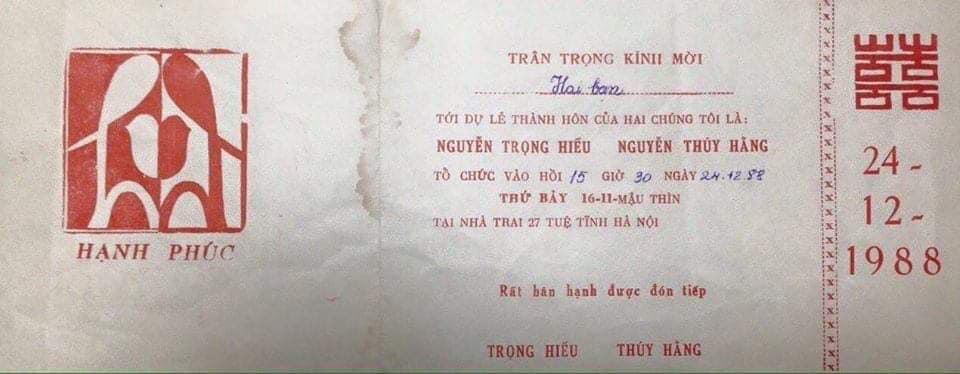 HẠNH PHÚC
TRÂN TRỌNG KÍNH MỜI
Hai bạn
TỚI DỰ LỄ THÀNH HÔN CỦA HAI CHÚNG TÔI LÀ:
NGUYỄN TRỌNG HIẾU NGUYỄN THÚY HẰNG
TỔ CHỨC VÀO HỒI 15 GIỜ 30 NGÀY 24.12.88
THỨ BẢY 16-11-MẬU THÌN
TẠI NHÀ TRAI 27 TUỆ TĨNH HÀ NỘI
Rất hân hạnh được đón tiếp
TRỌNG HIẾU THÚY HẰNG
囍
24-
12-
1988